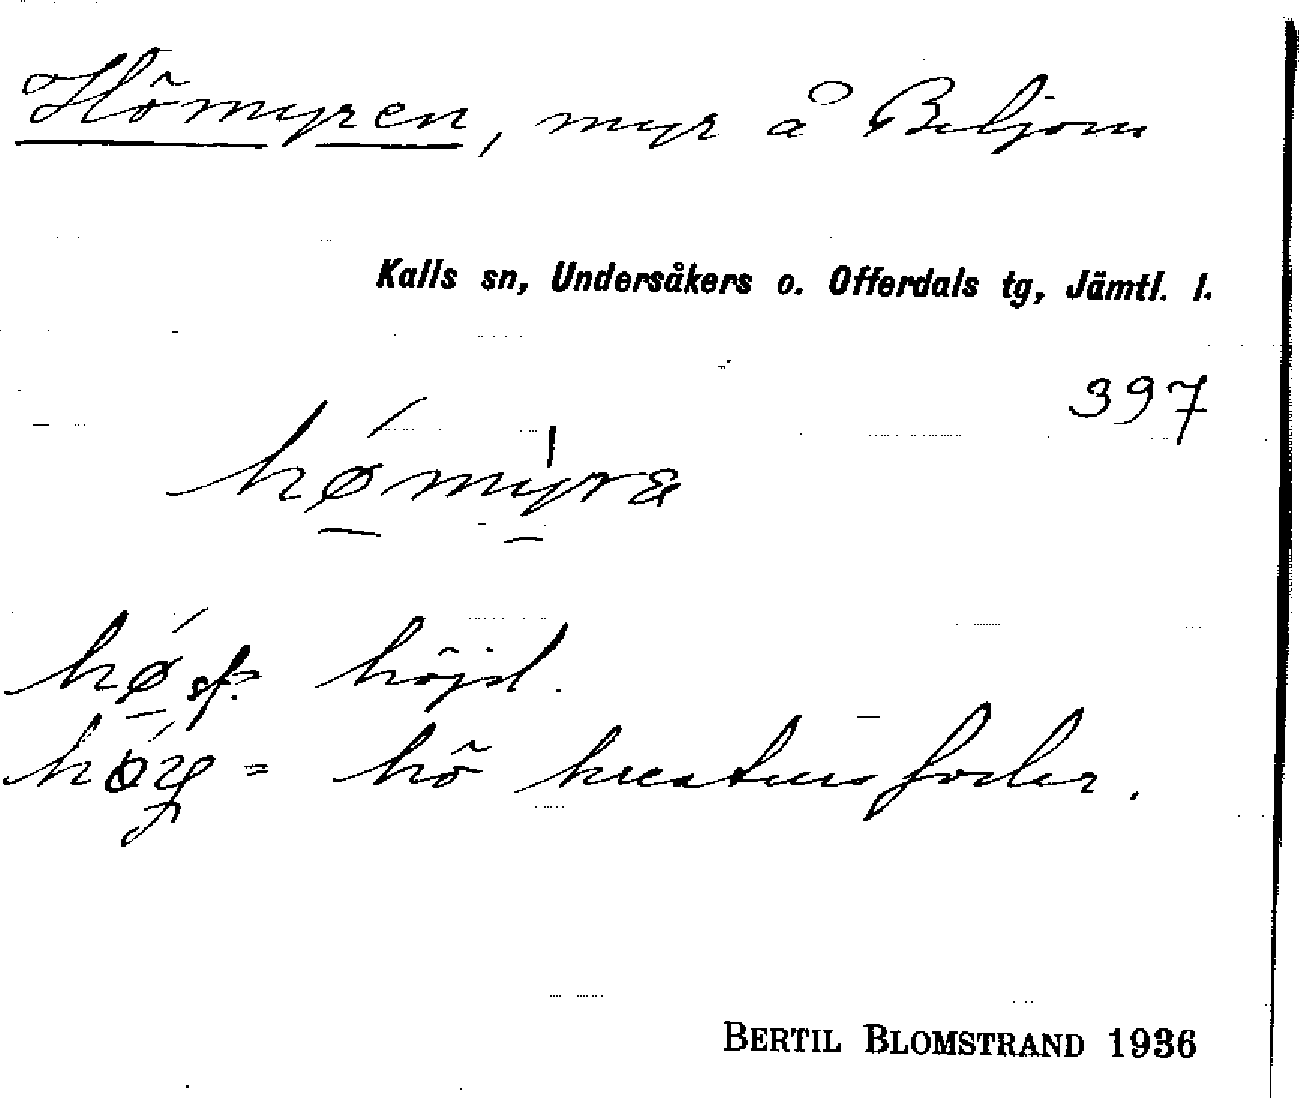 Hömyren, myr å Beljom
Kalls sn, Undersåkers o. Offerdals tg, Jämtl. l.
397
hǿmyra
hǿ sf. höjd.
høy = hö kreatursfoder.
BERTIL BLOMSTRAND 1936